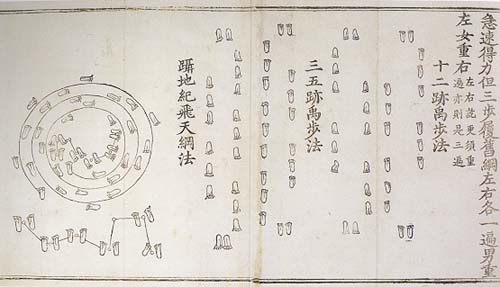 急速得力但三步履舊綱左右各一遍男重
左女重右
左右訖更須重
遍亦則是三遍
十二跡禹步法
三五跡禹步法
躡地紀飛天綱法